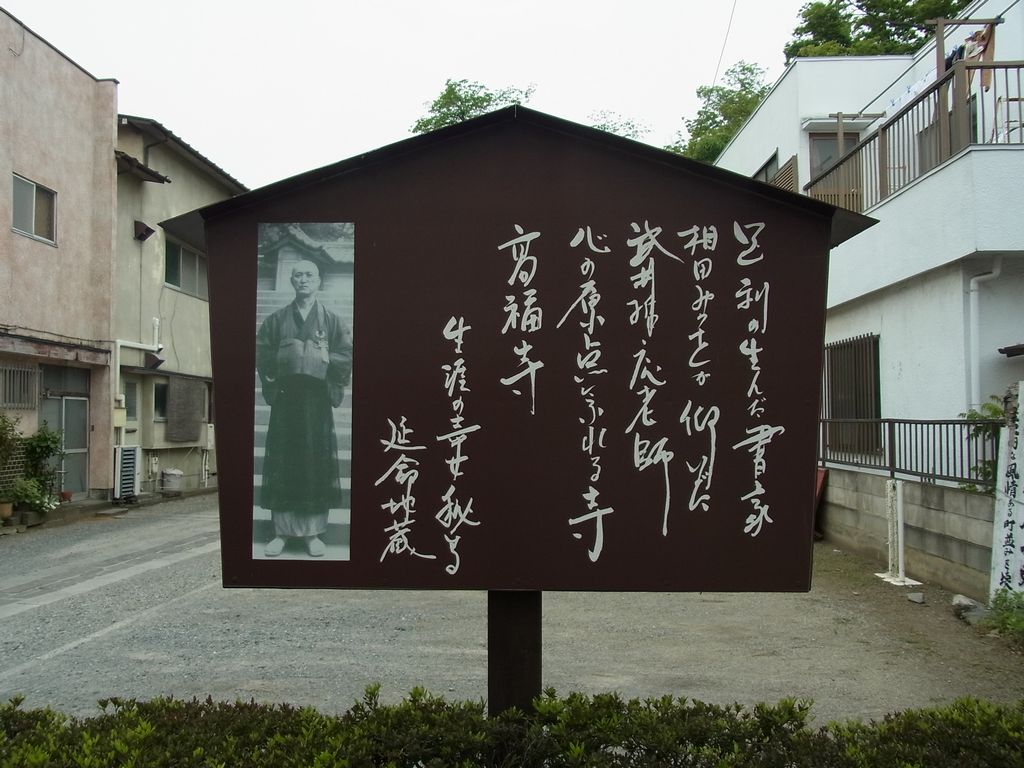 足利の生んだ書家
相田みつをが仰いだ
武井哲応老師
心の原点に系れる寺
高福寺
生涯の幸女秘す
延命地蔵
風情ある町並みを